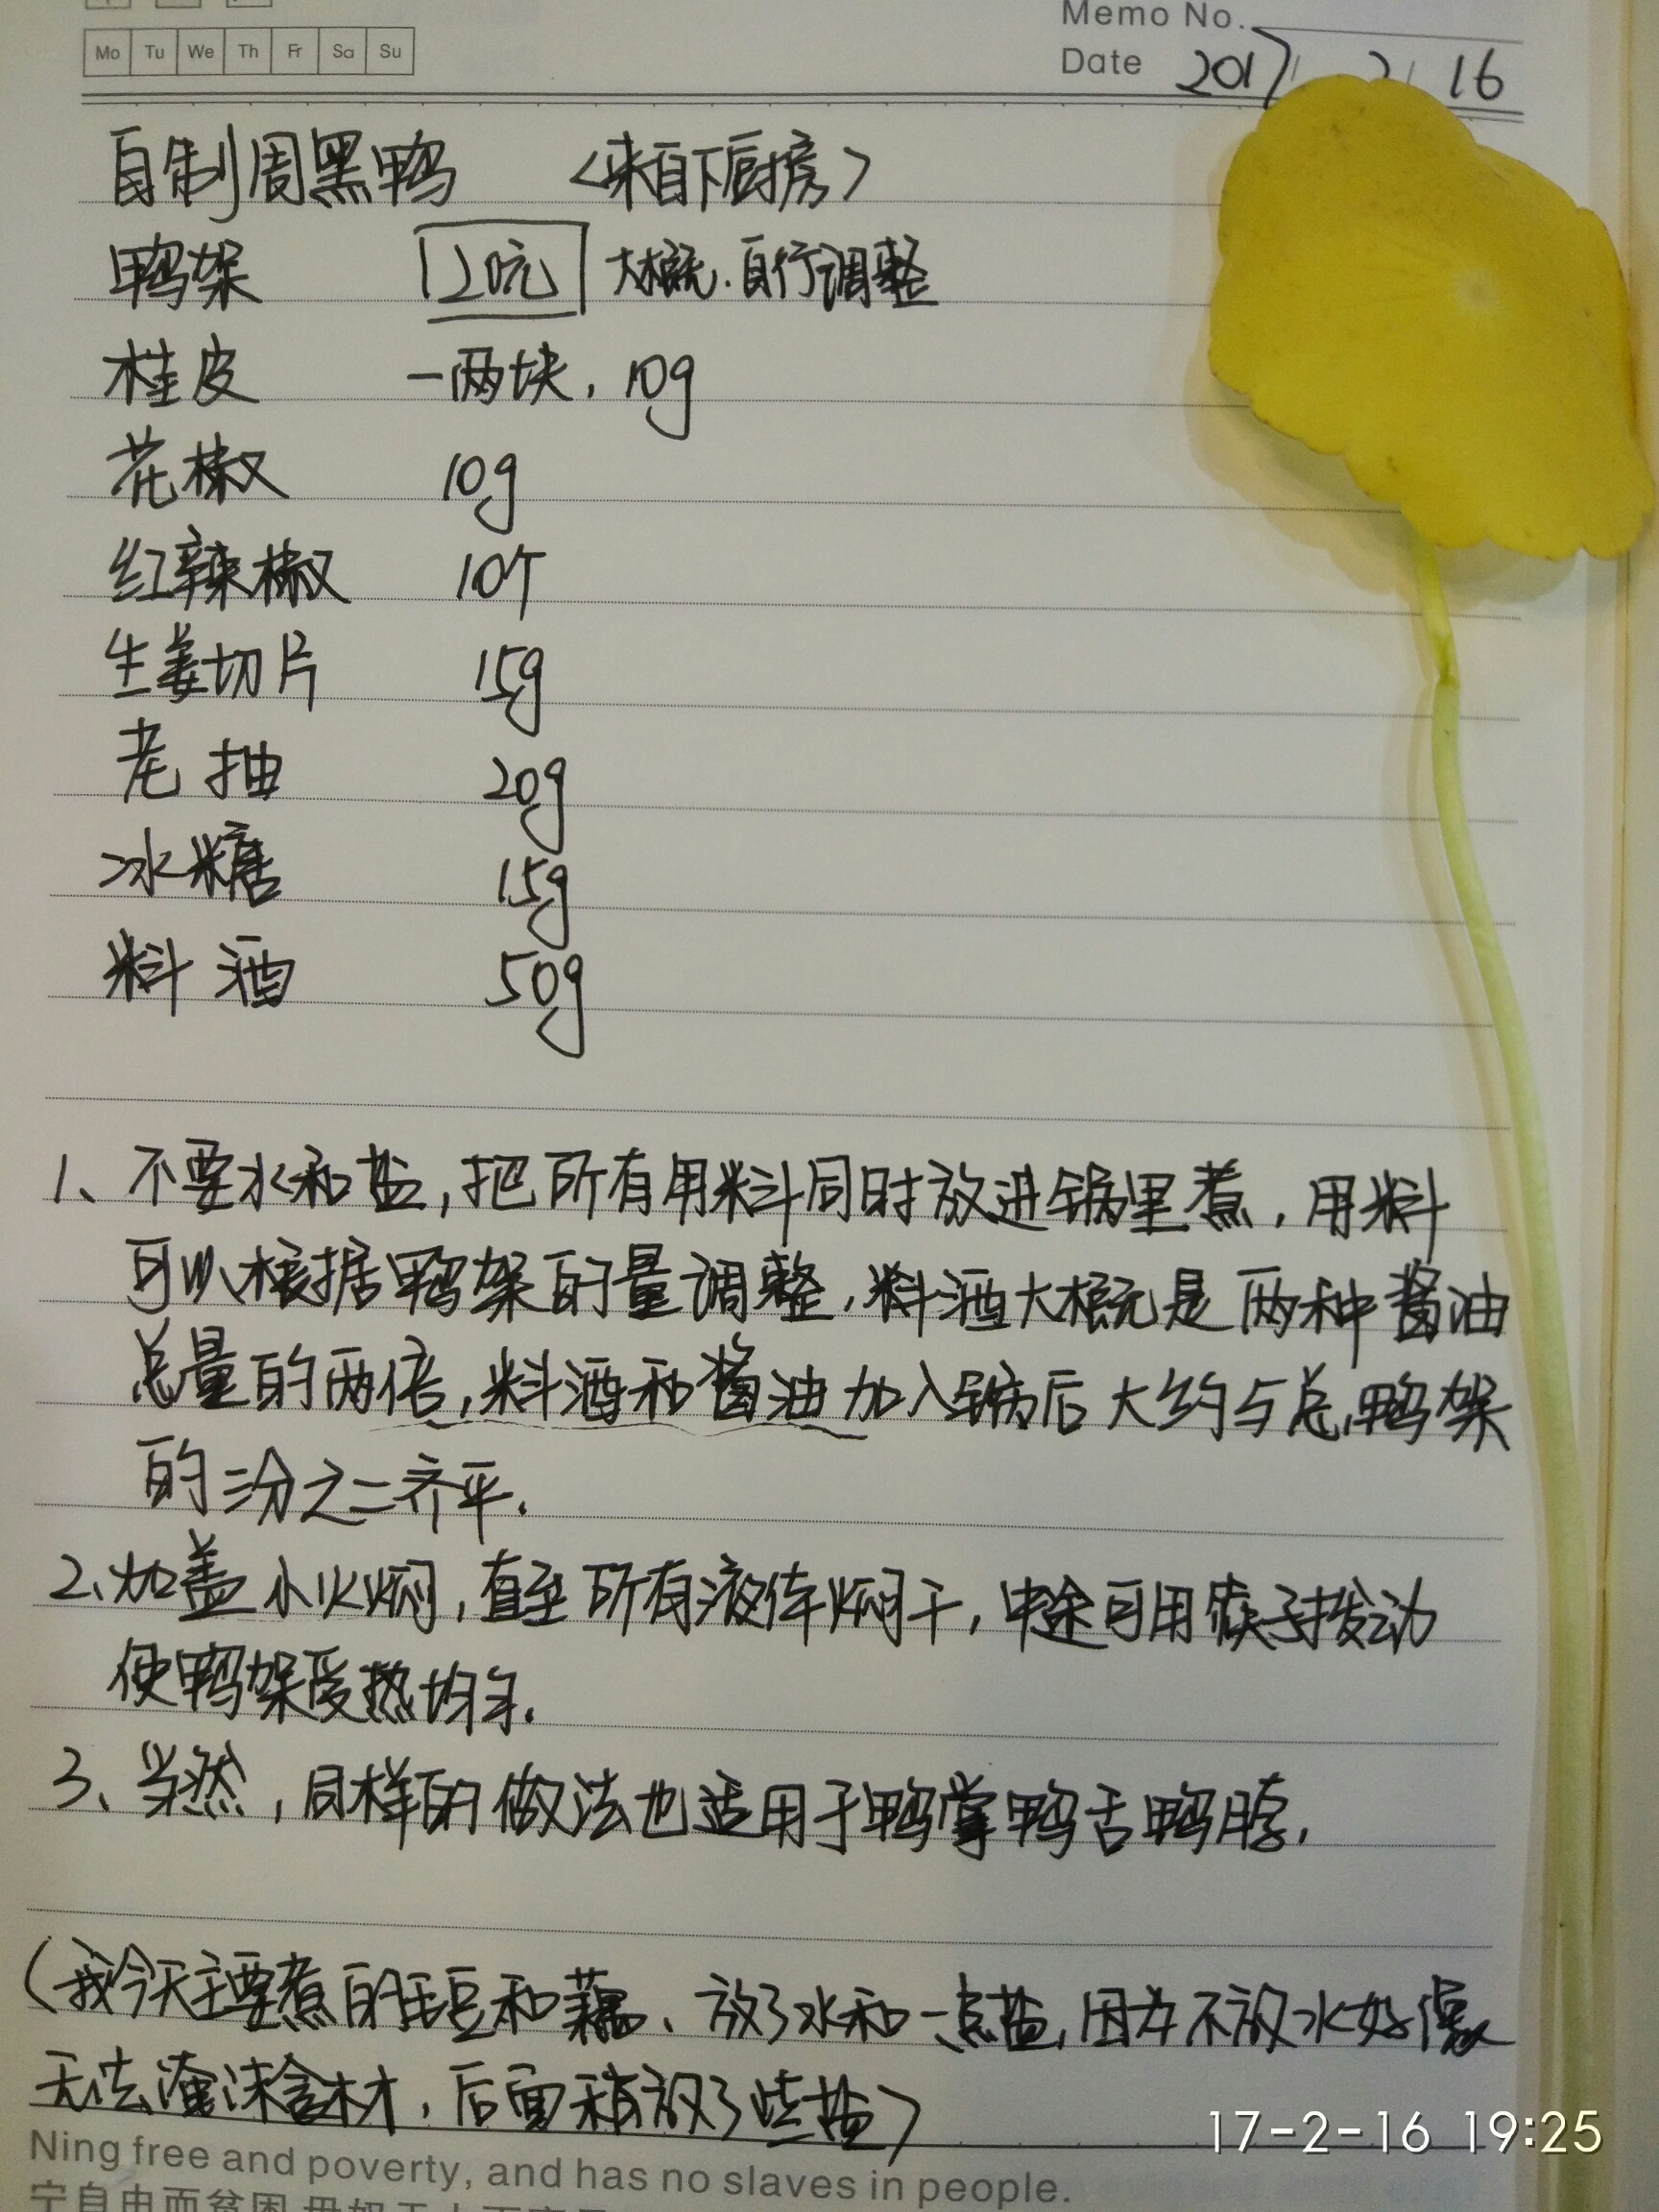 Memo No.
Mo Tu We Th Fr Sa Su
Date 2017 2 16
自制周黑鸭 <来自下厨房>
鸭架 20元 大概.自行调整
桂皮 一两块，10g
花椒 10g
红辣椒 10个
生姜切片 15g
老抽 20g
冰糖 15g
料酒 50g
1、不要水和盐，把所有用料同时放进锅里煮，用料
可以根据鸭架的量调整，料酒大概是两种酱油
总量的两倍，料酒和酱油加入锅后大约与总鸭架
的三分之二齐平.
2、加盖小火焖，直至所有液体焖干，中途可用筷子拨动
使鸭架受热均匀.
3、当然，同样的做法也适用于鸭掌鸭舌鸭脖.
(我今天主要煮的毛豆和藕、放了水和一点盐，因为不放水好像
无法淹没食材，后面稍放了些盐)
17-2-16 19:25
Ning free and poverty, and has no slaves in people.
宁自由而贫困